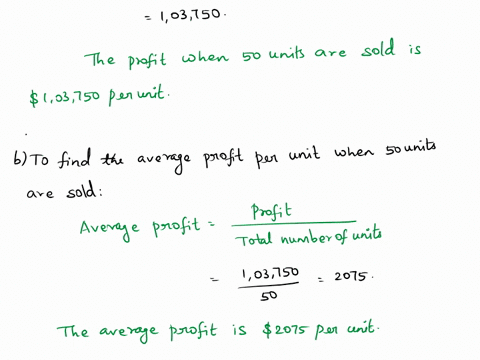 = 1,03,750.
The profit when 50 units are sold is
$1,03,750 per unit.
b) To find the average profit per unit when 50 units
are sold:
Average profit = Profit / Total number of units
= 1,03,750 / 50 = 2075.
The average profit is $2075 per unit.